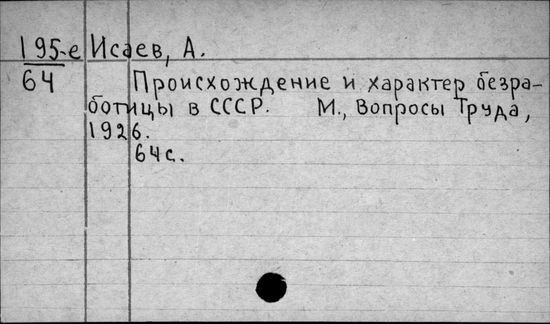 195-е Исаев, А.
64 Происхождение и характер безра-
ботицы в СССР. М., Вопросы Труда,
1926.
64 с.